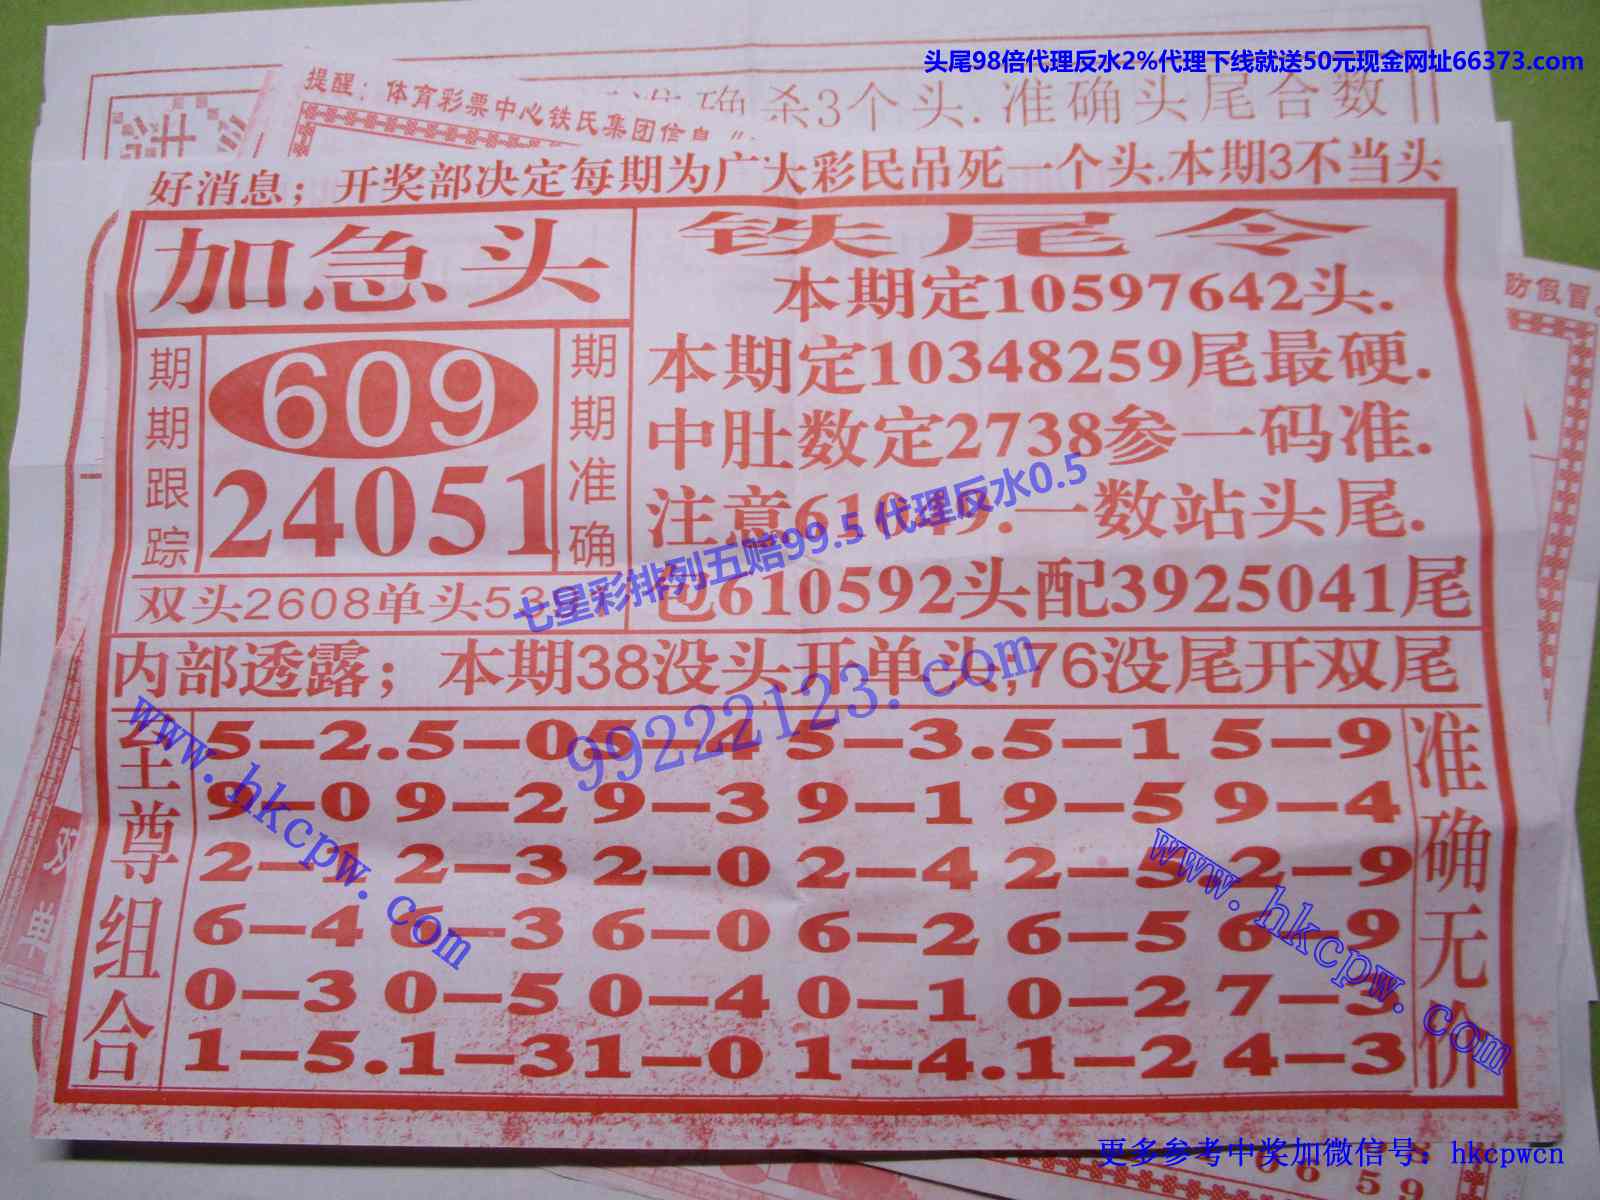 头尾98倍代理反水2%代理下线就送50元现金网址66373.com
准确杀3个头.准确头尾合数
提醒：体育彩票中心铁氏集团信息
防假冒.
好消息；开奖部决定每期为广大彩民吊死一个头.本期3不当头
加急头
期期跟踪
609
24051
期期准确
双头2608单头53
铁尾令
本期定10597642头.
本期定10348259尾最硬.
中肚数定2738参一码准.
注意.61049.一数站头尾.
包610592头配3925041尾
七星彩排列五赔99.5 代理反水0.5
内部透露；本期38没头开单头;76没尾开双尾
99222123.com
至尊组合
5–2.5–0 5–4 5–3.5–1 5–9
9–0 9–2 9–3 9–1 9–5 9–4
2–1 2–3 2–0 2–4 2–5 2–9
6–4 6–3 6–0 6–2 6–5 6–9
0–3 0–5 0–4 0–1 0–2 7–3
1–5.1–3 1–0 1–4.1–2 4–3
准确无价
www.hkcpw.com
www.hkcpw.com
双
单
更多参考中奖加微信号：hkcpwcn